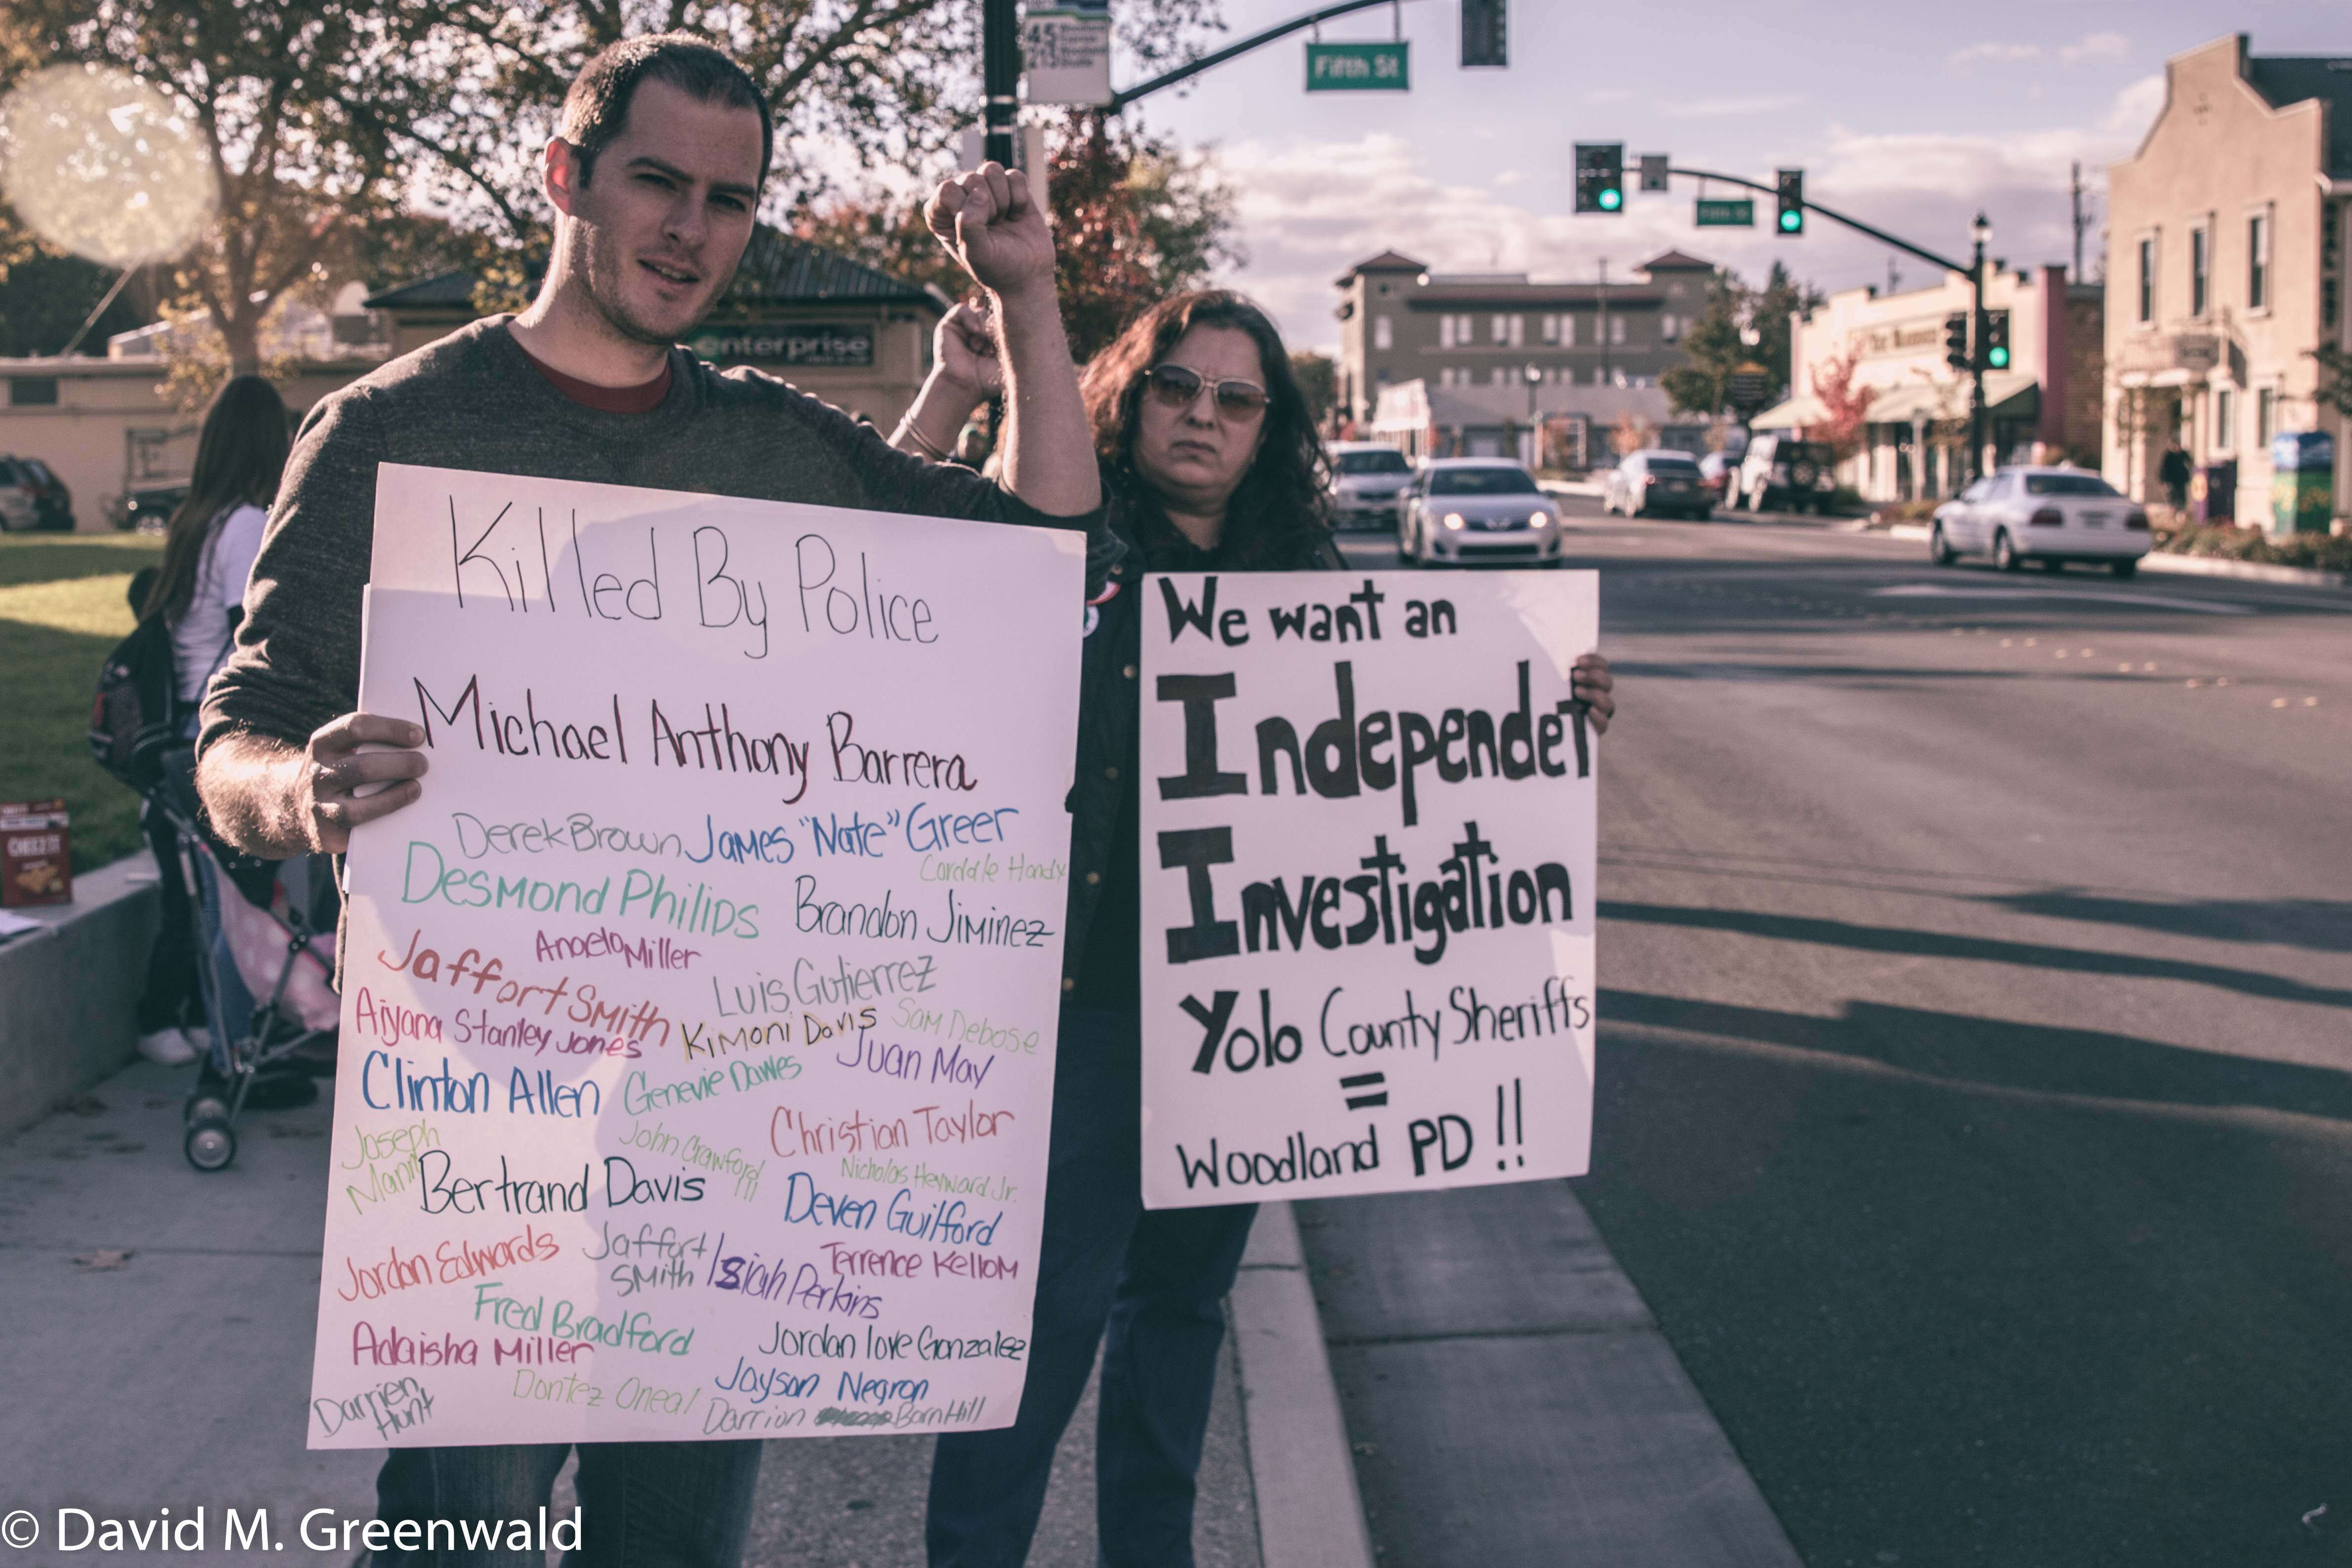 45
Fifth St
Fifth St
enterprise
CHEEZ IT
Killed By Police
Michael Anthony Barrera
Derek Brown James "Nate" Greer
Cordale Handy
Desmond Philips Brandon Jiminez
Angelo Miller
Jaffort Smith Luis Gutierrez
Aiyana Stanley Jones Kimoni Davis Sam Debose
Clinton Allen Genevie Dawes Juan May
Joseph Mann John Crawford III Christian Taylor
Bertrand Davis Nicholas Heyward Jr.
Deven Guilford
Jordan Edwards Jaffort Smith Isiah Perkins Terrence Kellom
Fred Bradford
Adaisha Miller Jordan love Gonzalez
Darrien Hunt Dontez Oneal Jayson Negron
Darrion BarnHill
We want an
IndependeT
Investigation
Yolo County Sheriffs
=
Woodland PD !!
© David M. Greenwald